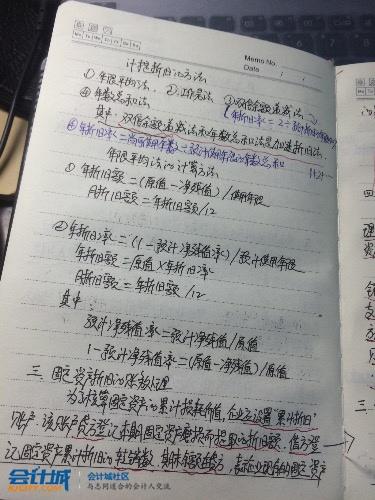 Memo No.
Date
计提折旧的方法
① 年限平均法 ② 工作量法 ③ 双倍余额递减法
④ 年数总和法
其中：双倍余额递减法和年数总和法是加速折旧法.
年限平均法的计算方法
① 年折旧额 = (原值 - 净残值) / 使用年限
月折旧额 = 年折旧额 / 12
② 年折旧率 = (1 - 预计净残值率) / 预计使用年限
年折旧额 = 原值 × 年折旧率
月折旧额 = 年折旧额 / 12
其中:
预计净残值率 = 预计净残值 / 原值
1 - 预计净残值率 = (原值 - 净残值) / 原值
三、固定资产折旧的账放处理
为了核算固定资产的累计损耗价值, 企业应设置"累计折旧"
账户. 该账户贷方登记本期固定资产磨损而提取的折旧额. 借方登
记固定资产累计折旧的转销数, 期末余额在贷方, 表示企业现有的固定资产
会计城
KJCITY.COM
会计城社区
与志同道合的会计人交流